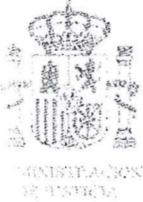 ADMINISTRACION
DE JUSTICIA